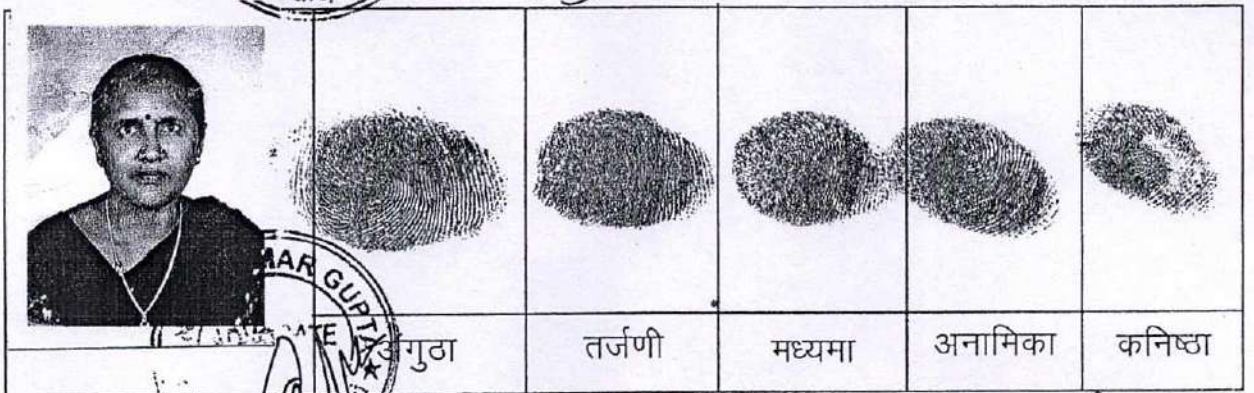 MAR GUPTA
ATE
अंगुठा तर्जणी मध्यमा अनामिका कनिष्ठा